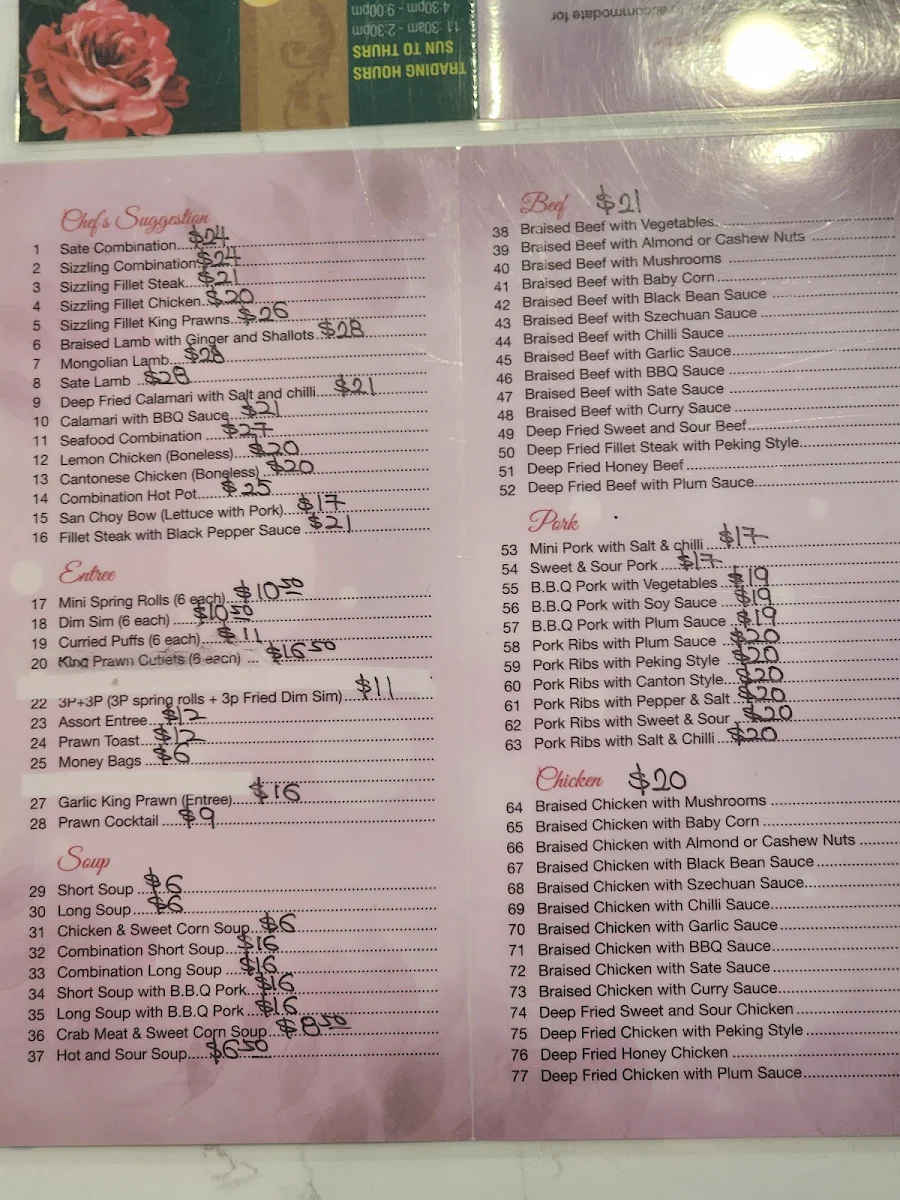 TRADING HOURS
SUN TO THURS
11:30am - 2:30pm
4:30pm - 9:00pm
accommodate for
Chef's Suggestion
1 Sate Combination $24
2 Sizzling Combination $24
3 Sizzling Fillet Steak $21
4 Sizzling Fillet Chicken $20
5 Sizzling Fillet King Prawns $26
6 Braised Lamb with Ginger and Shallots $28
7 Mongolian Lamb $28
8 Sate Lamb $28
9 Deep Fried Calamari with Salt and chilli $21
10 Calamari with BBQ Sauce $21
11 Seafood Combination $27
12 Lemon Chicken (Boneless) $20
13 Cantonese Chicken (Boneless) $20
14 Combination Hot Pot $25
15 San Choy Bow (Lettuce with Pork) $17
16 Fillet Steak with Black Pepper Sauce $21
Entree
17 Mini Spring Rolls (6 each) $10.50
18 Dim Sim (6 each) $10.50
19 Curried Puffs (6 each) $11
20 King Prawn Cutlets (6 each) $16.50
22 3P+3P (3P spring rolls + 3p Fried Dim Sim) $11
23 Assort Entree $12
24 Prawn Toast $12
25 Money Bags $6
27 Garlic King Prawn (Entree) $16
28 Prawn Cocktail $9
Soup
29 Short Soup $6
30 Long Soup $6
31 Chicken & Sweet Corn Soup $6
32 Combination Short Soup $16
33 Combination Long Soup $16
34 Short Soup with B.B.Q Pork $16
35 Long Soup with B.B.Q Pork $16
36 Crab Meat & Sweet Corn Soup $8.50
37 Hot and Sour Soup $6.50
Beef $21
38 Braised Beef with Vegetables
39 Braised Beef with Almond or Cashew Nuts
40 Braised Beef with Mushrooms
41 Braised Beef with Baby Corn
42 Braised Beef with Black Bean Sauce
43 Braised Beef with Szechuan Sauce
44 Braised Beef with Chilli Sauce
45 Braised Beef with Garlic Sauce
46 Braised Beef with BBQ Sauce
47 Braised Beef with Sate Sauce
48 Braised Beef with Curry Sauce
49 Deep Fried Sweet and Sour Beef
50 Deep Fried Fillet Steak with Peking Style
51 Deep Fried Honey Beef
52 Deep Fried Beef with Plum Sauce
Pork
53 Mini Pork with Salt & chilli $17
54 Sweet & Sour Pork $17
55 B.B.Q Pork with Vegetables $19
56 B.B.Q Pork with Soy Sauce $19
57 B.B.Q Pork with Plum Sauce $19
58 Pork Ribs with Plum Sauce $20
59 Pork Ribs with Peking Style $20
60 Pork Ribs with Canton Style $20
61 Pork Ribs with Pepper & Salt $20
62 Pork Ribs with Sweet & Sour $20
63 Pork Ribs with Salt & Chilli $20
Chicken $20
64 Braised Chicken with Mushrooms
65 Braised Chicken with Baby Corn
66 Braised Chicken with Almond or Cashew Nuts
67 Braised Chicken with Black Bean Sauce
68 Braised Chicken with Szechuan Sauce
69 Braised Chicken with Chilli Sauce
70 Braised Chicken with Garlic Sauce
71 Braised Chicken with BBQ Sauce
72 Braised Chicken with Sate Sauce
73 Braised Chicken with Curry Sauce
74 Deep Fried Sweet and Sour Chicken
75 Deep Fried Chicken with Peking Style
76 Deep Fried Honey Chicken
77 Deep Fried Chicken with Plum Sauce